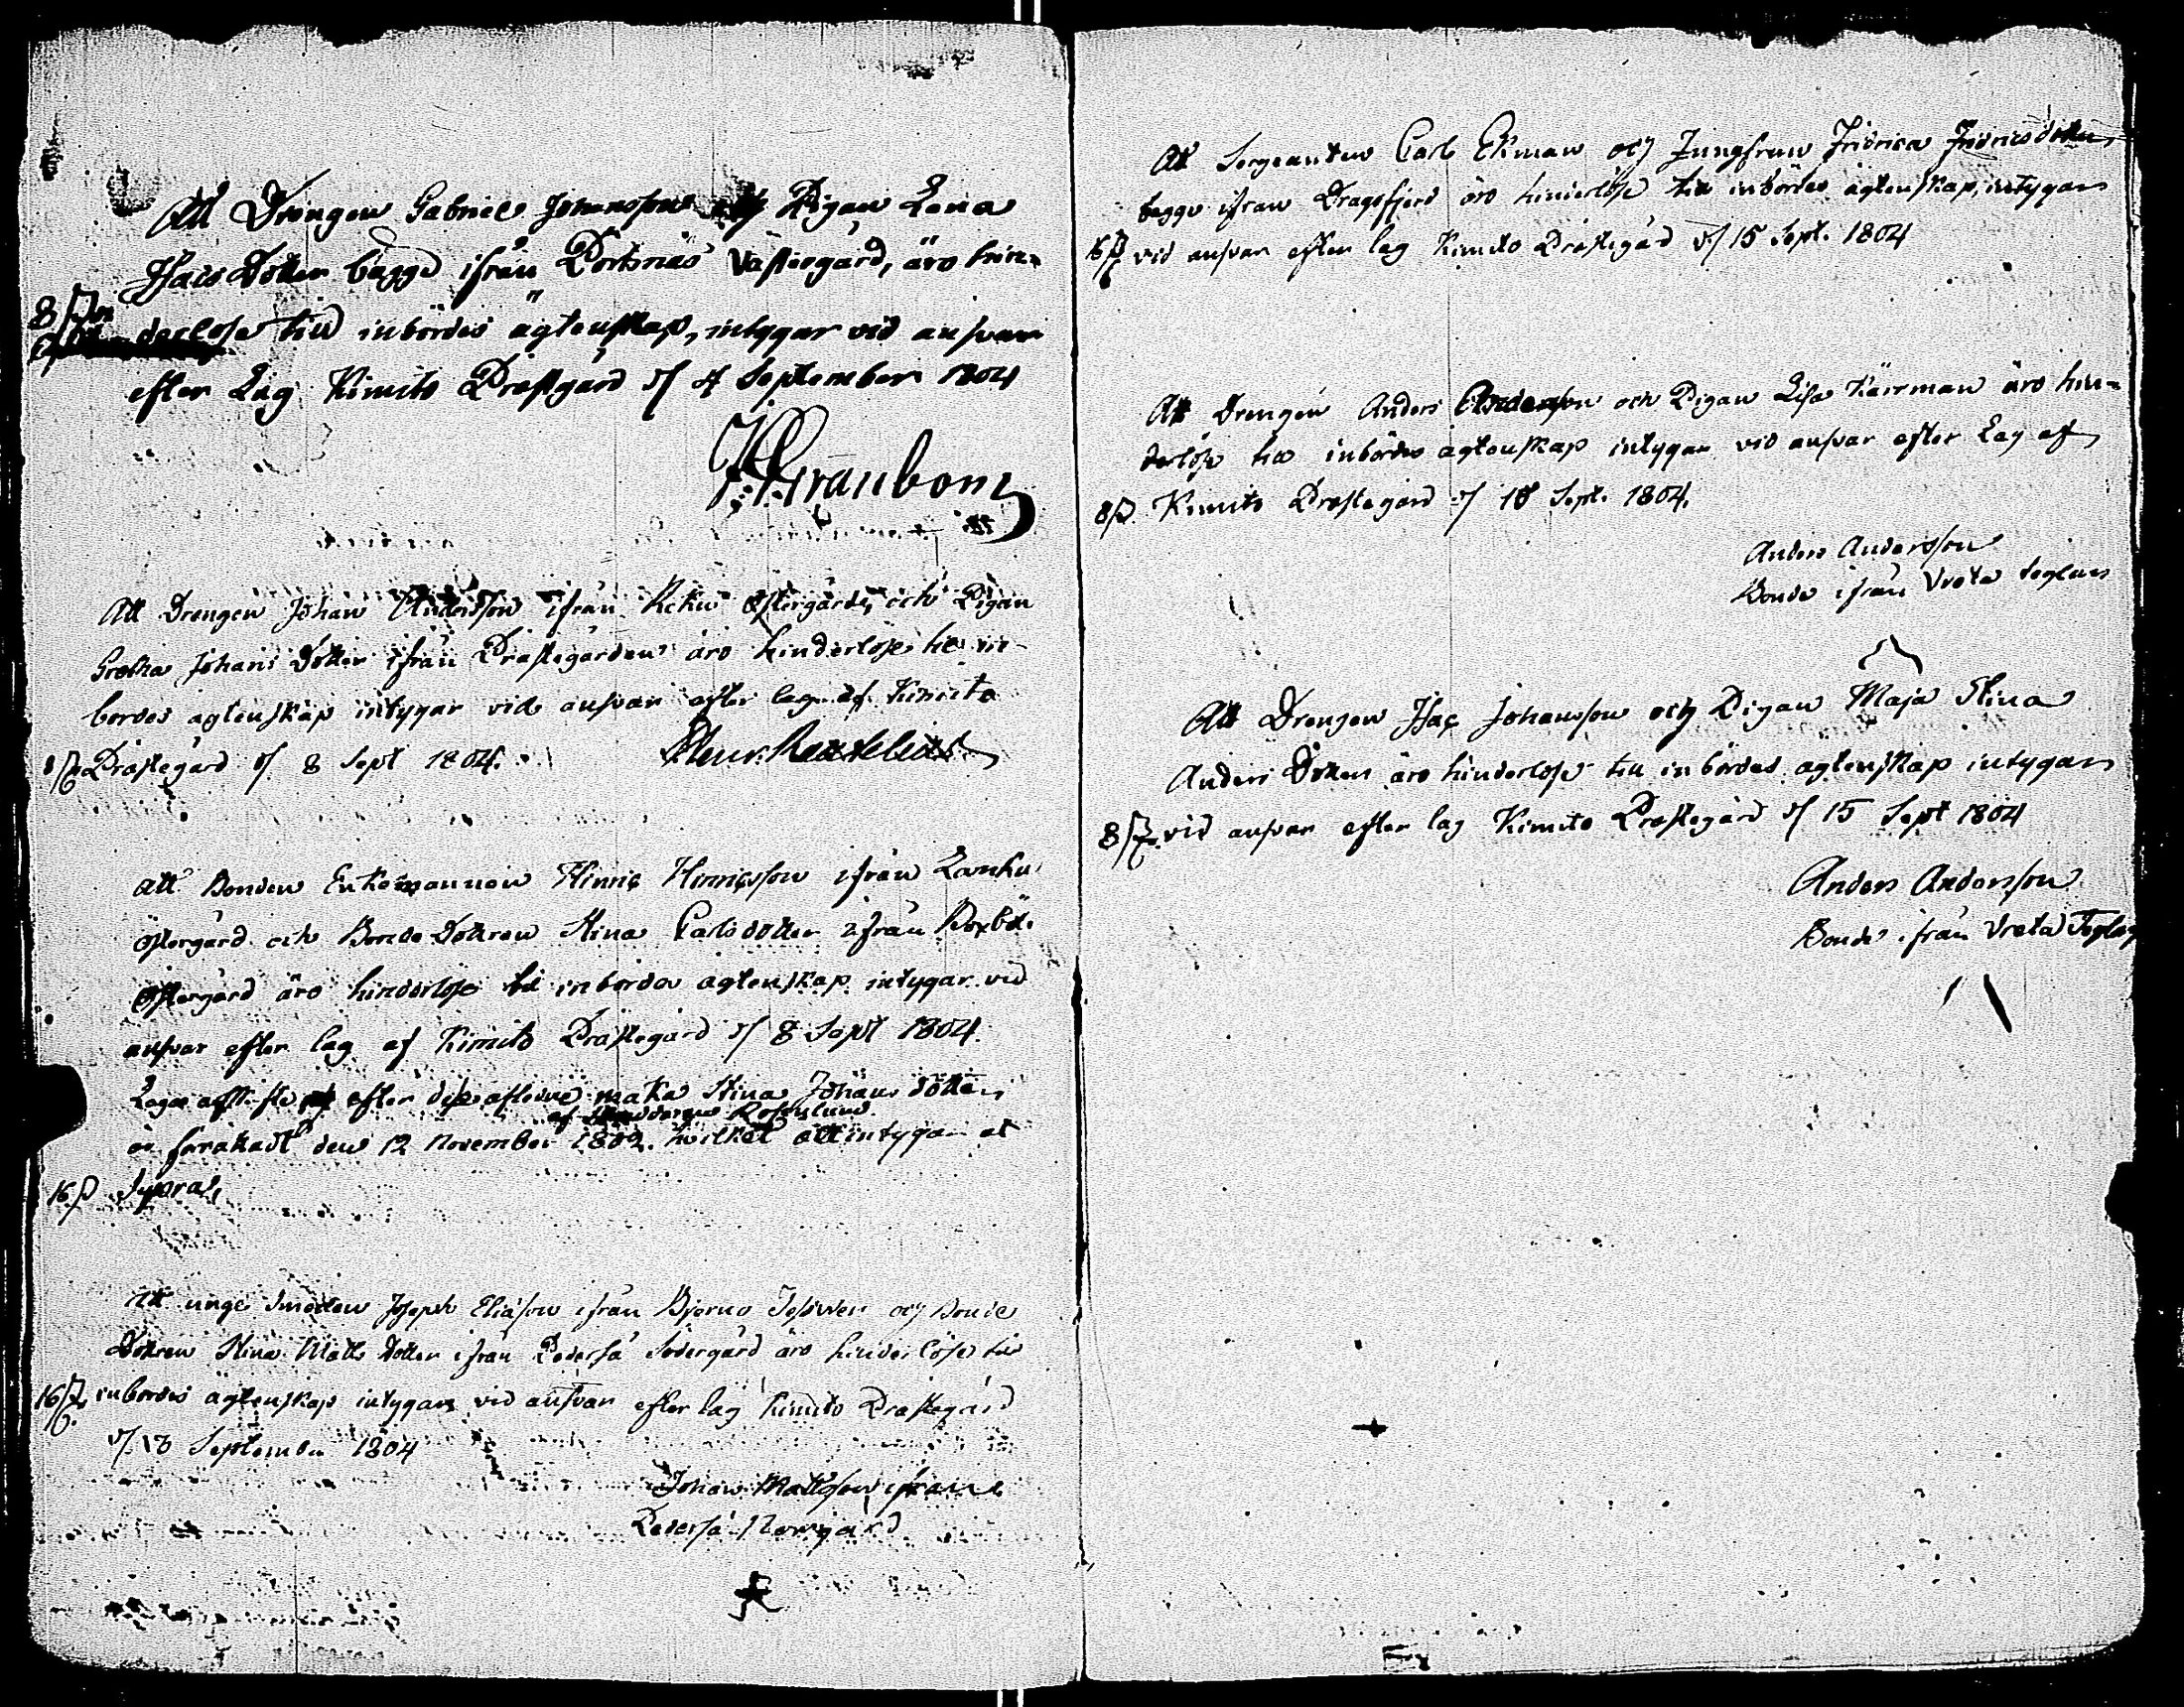 Att Drengen Gabriel Johansson och Pigan Lena
Isacs Dotter bägge ifrån Portnäs Västergård, äro hin-
8 ß derlöse till inbördes ägtenskap, intygar vid answar
efter Lag Kimito Prästgård d 4 September 1804
Granbom
Att Drengen Johan Andersson ifrån Reku Östergård, och Pigan
Gretha Johans Dotter ifrån Prästegården äro hinderlöse til in-
bördes ägtenskap intygar vid answar efter lag af Kimito
8 ß Prästegård d 8 Sept 1804.
Att Bonden Enkemannen Hinric Hinricsson ifrån Lamku
Östergård och Bonde Dottren Stina Carlsdotter ifrån Roxböle
Östergård äro hinderlöse til inbördes ägtenskap intygar vid
answar efter lag af Kimito Prästegård d 8 Sept 1804.
Laga afskifte efter des aflidne maka Stina Johans dotter
af Rosenlund
är förrättadt den 12 November 1802. hvilket att intygar at
16 ß
Att unge Smeden Joseph Eliasson ifrån Bjernö och Bonde
Dottren Stina Matts dotter ifrån Pederså Södergård äro hinderlöse til
16 ß inbördes ägtenskap intygar vid answar efter lag Kimito Prästegård
d 18 September 1804
Johan Mattsson ifrån
Pederså Norrgård
Att Sergeanten Carl Ekman och Jungfrun Fridrica Fridricsdotter
bägge ifrån Dragsfjerd äro hinderlöse till inbördes ägtenskap, intygar
16 ß vid answar efter lag Kimito Prästegård d 15 Sept. 1804
Att Drengen Anders Andersson och Pigan Lisa Kärrman äro hin-
derlöse till inbördes ägtenskap intygar vid answar efter Lag af
8 ß Kimito Prästegård d 18 Sept. 1804.
Anders Andersson
Bonde ifrån Vreta
Att Drengen Isac Johansson och Pigan Maja Stina
Anders Dotter äro hinderlöse till inbördes ägtenskap intygar
8 ß vid answar efter lag Kimito Prästegård d 15 Sept 1804
Anders Andersson
Bonde ifrån Vreta